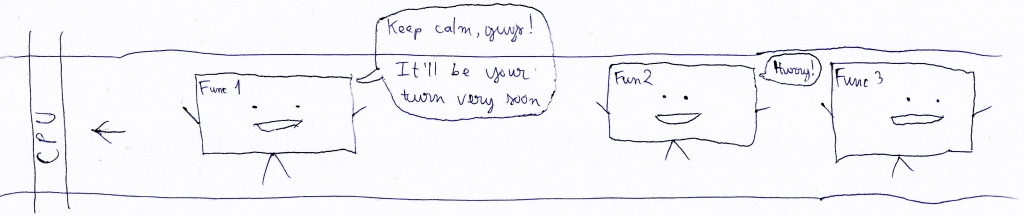 CPU
Func 1
Keep calm, guys!
It'll be your
turn very soon
Fun2
Hurry!
Func 3